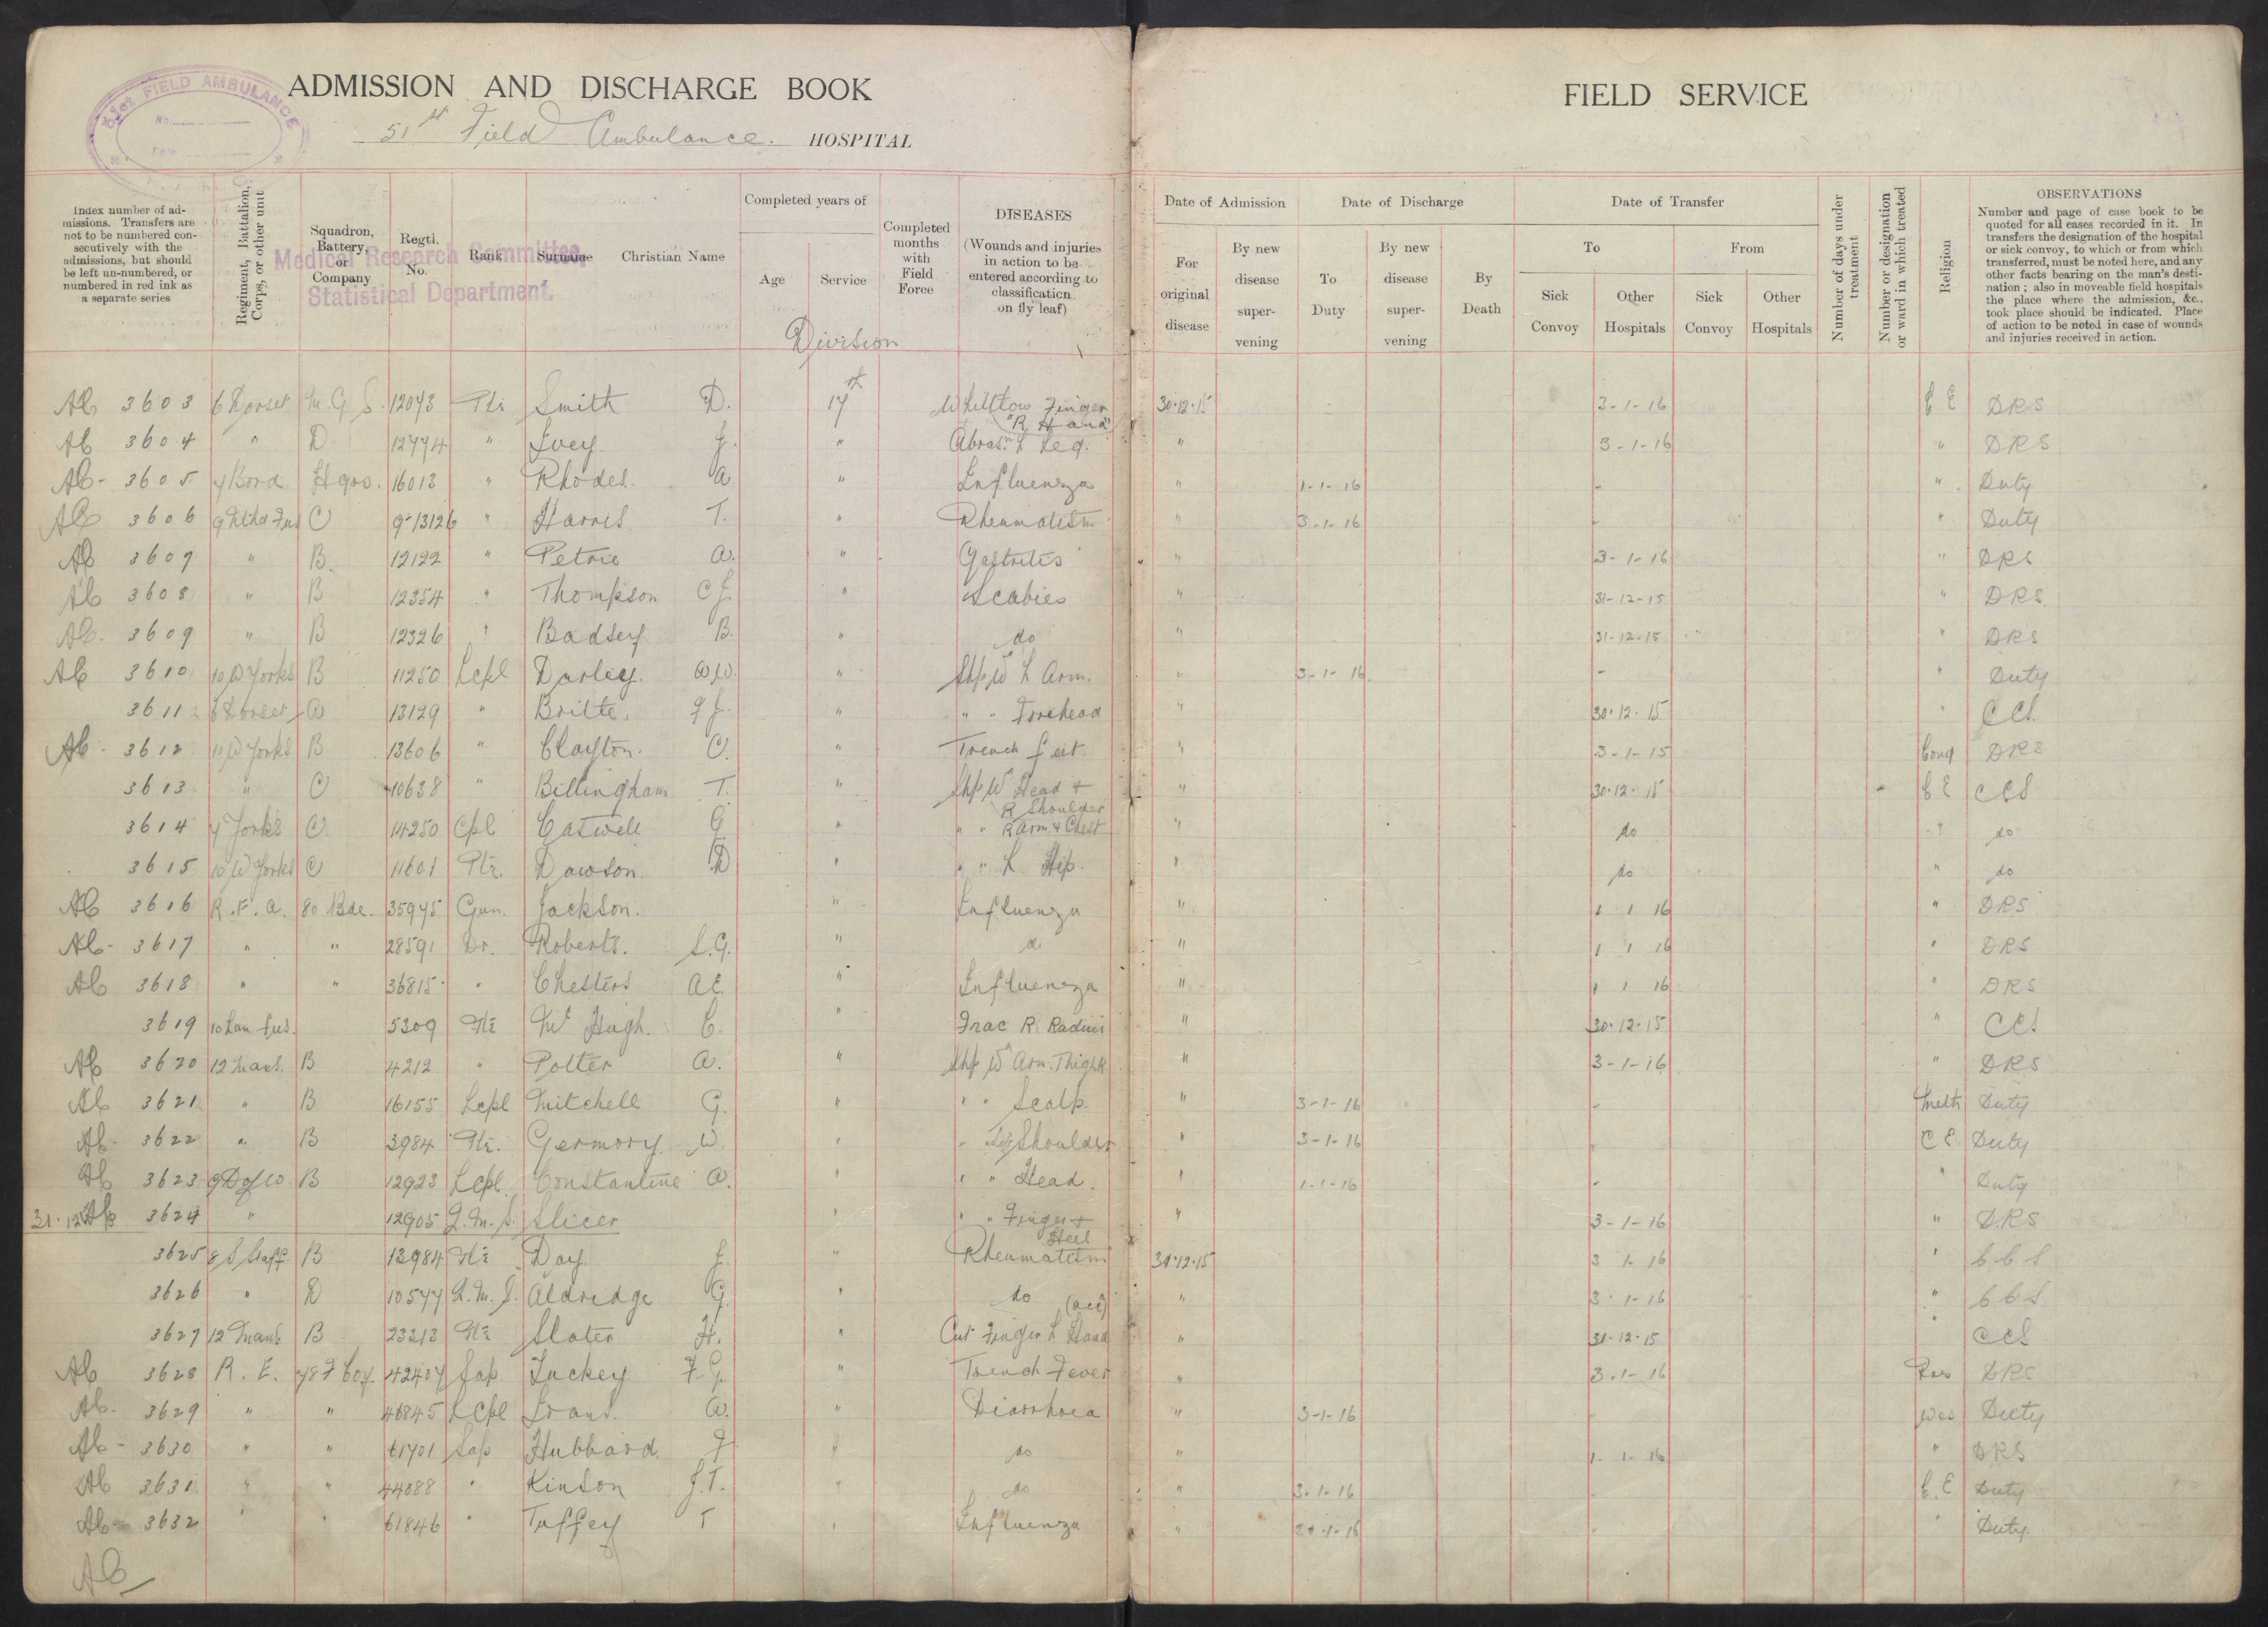 51st FIELD AMBULANCE
No.
Date
ADMISSION AND DISCHARGE BOOK
FIELD SERVICE
51st Field Ambulance. HOSPITAL
Medical Research Committee,
Statistical Department.
Index number of admissions. Transfers are not to be numbered consecutively with the admissions, but should be left un-numbered, or numbered in red ink as a separate series
Regiment, Battalion, Corps, or other unit
Squadron, Battery, or Company
Regtl. No.
Rank
Surname
Christian Name
Completed years of
Age
Service
Division
Completed months with Field Force
DISEASES
(Wounds and injuries in action to be entered according to classification on fly leaf)
Date of Admission
For original disease
By new disease supervening
Date of Discharge
To Duty
By new disease supervening
By Death
Date of Transfer
To
Sick Convoy
Other Hospitals
From
Sick Convoy
Other Hospitals
Number of days under treatment
Number or designation or ward in which treated
Religion
OBSERVATIONS
Number and page of case book to be quoted for all cases recorded in it. In transfers the designation of the hospital or sick convoy, to which or from which transferred, must be noted here, and any other facts bearing on the man's destination; also in moveable field hospitals the place where the admission, &c., took place should be indicated. Place of action to be noted in case of wounds and injuries received in action.
Ab 3603 6 Dorset M.G.S. 12043 Pte Smith D. 17th Whittow Finger "R Hand" 30.12.15 3-1-16 C E DRS
Ab 3604 " D 12774 " Ivey J. " Abrasn L Leg. " 3-1-16 " DRS
Ab - 3605 7 Bord Hqrs. 16013 " Rhodes. A. " Influenza " 1-1-16 - " Duty
Ab 3606 9 Nthd Fus C 9-13126 " Harris T. " Rheumatism " 3-1-16 - " Duty
Ab 3607 " B. 12122 " Petrie A. " Gastritis " 3-1-16 " DRS
Ab 3608 " B 12354 " Thompson C J. " Scabies " 31-12-15 " DRS
Ab. 3609 " B 12326 " Badsey B. " do " 31-12-15 " DRS
Ab 3610 10 W Yorks B 11250 Lcpl Darley. W.W. " Shp Wd L Arm. " 3-1-16 - " Duty
3611 6 Dorset A 13129 " Britte. G J. " " " Forehead " 30.12.15 " CCS.
Ab - 3612 10 W Yorks B 13606 " Clayton. C. " Trench feet " 3-1-15 Cong DRS
3613 " C 10638 " Billingham T. " Shp Wd Head + R Shoulder " 30.12.15 C E CCS
3614 7 Yorks C. 14250 Cpl Caswell G " " " R Arm + Chest " do " do
3615 10 W Yorks C 11601 Pte. Dawson. D " " " L Hip. " do " do
Ab 3616 R.F.A. 80 Bde. 35975 Gun. Jackson. " Influenza " 1 1 16 " DRS
Ab - 3617 " " 28591 Dr. Roberts. S.G. " " 1 1 16 " DRS
Ab 3618 " " 36815 " Chesters A E. " Influenza " 1 1 16 " DRS
3619 10 Lan Fus. 5309 Pte Mc Hugh. C. " Frac R. Radius " 30.12.15 " CCS
Ab 3620 12 Manc. B 4212 " Potter A. " Shp Wd Arm. Thigh R. " 3-1-16 " DRS
Ab 3621 " B 16155 Lcpl Mitchell G. " " " Scalp. " 3-1-16 - Meth Duty
Ab - 3622 " B 3984 Pte. Germory W. " " " Shoulder " 3-1-16 - C E Duty
Ab 3623 9 D of W. B 12923 Lcpl Constantine A. " " " Head. " 1-1-16 - " Duty
31.12 Ab 3624 " 12905 Q.M.S. Slicer " " " Finger + Heel " 3-1-16 " DRS
3625 8 S Staff. B 13984 Pte Day J. " Rheumatism 31.12.15 3 1-16 " CCS
3626 " D 10577 Q.M.S. Aldredge G. " do " 3-1-16 " CCS
3627 12 Manc B 23213 Pte Slater H. " Cut Finger L Hand (acc) " 31.12.15 " CCS
Ab 3628 R.E. 78 F Coy 42407 Sap Luckey F.G. " Trench Fever " 3-1-16 Pres DRS
Ab. 3629 " " 46845 Lcpl Evans. W. " Diarrhoea " 3-1-16 - Wes Duty
Ab - 3630 " " 61701 Sap Hubbard. F " do " 1-1-16 " DRS
Ab 3631 " " 44088 " Kinson J.T. " do " 3-1-16 C.E Duty
Ab - 3632 " " 61846 " Taffey T " Influenza " -1-16 - " Duty.
Ab